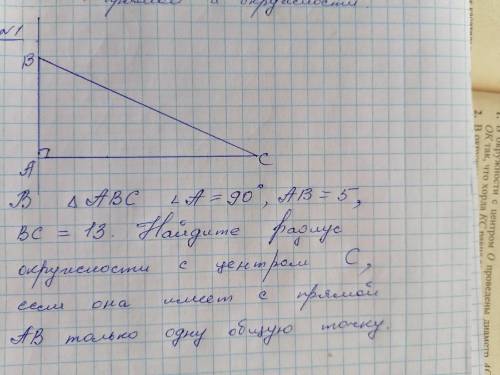 прямой и окружности.
№1
B
A
C
В △ABC ∠A = 90°, AB = 5,
BC = 13. Найдите радиус
окружности с центром C,
если она имеет с прямой
AB только одну общую точку.
окружности с центром O проведены диаметр
OK так, что хорда
2. В